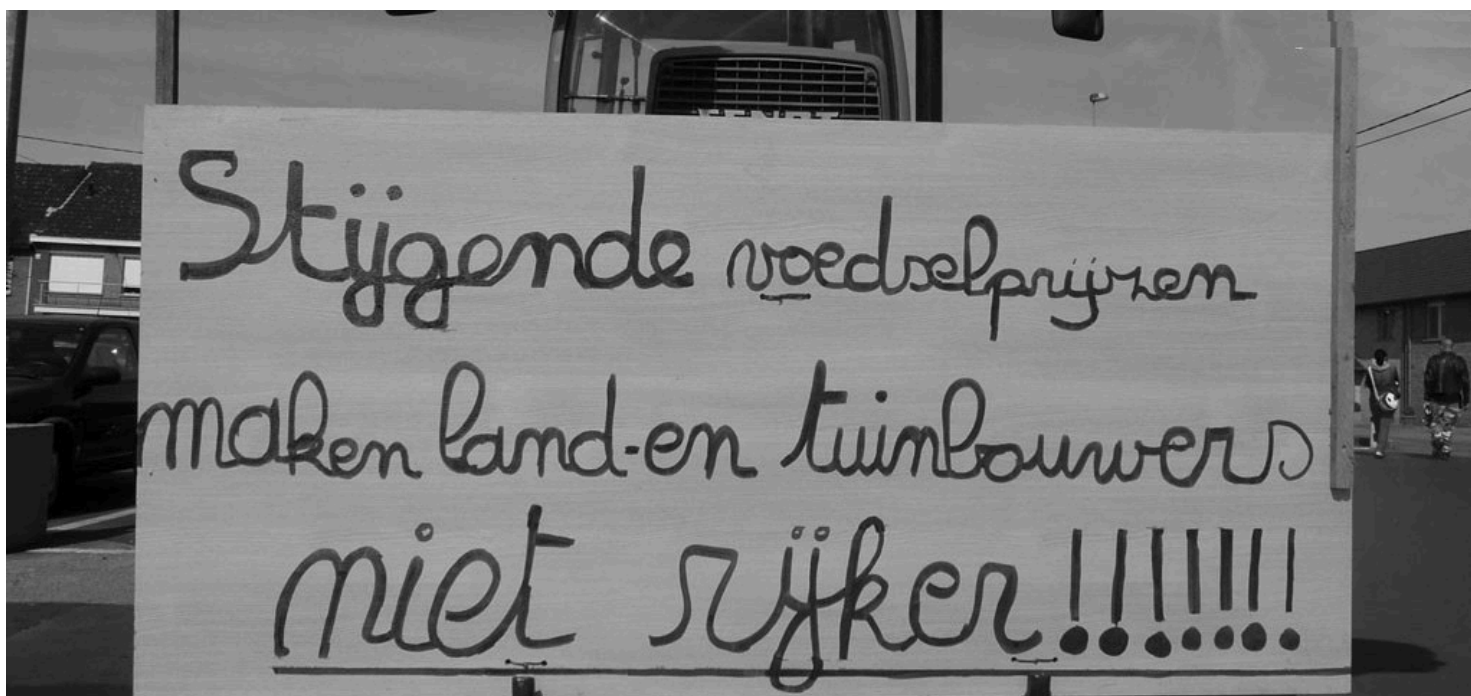 FENDT
Stijgende voedselprijzen
maken land-en tuinbouwers
niet rijker!!!!!!!